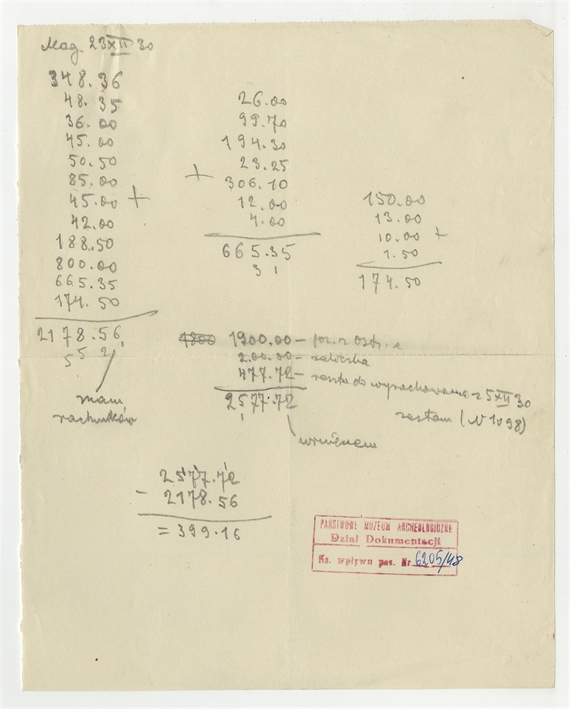 Mag. 23XII 30
348.36
48.35
36.00
45.00
50.50
85.00
45.00 +
42.00
188.50
800.00
665.35
174.50
2178.56
5 5 2 1
mam
rachunków
26.00
99.70
194.30
23.25
+ 306.10
12.00
4.00
665.35
3 1
150.00
13.00
10.00 +
1.50
174.50
1800 1900.00 –
200.00 – zaliczka
477.72 – reszta do wyrachowania z 5XII 30
zostam (N 1098)
2577.72
1
winienem
2577.72
– 2178.56
= 399.16
PAŃSTWOWE MUZEUM ARCHEOLOGICZNE
Dział Dokumentacji
Ks. wpływu poz. Nr 6205/48